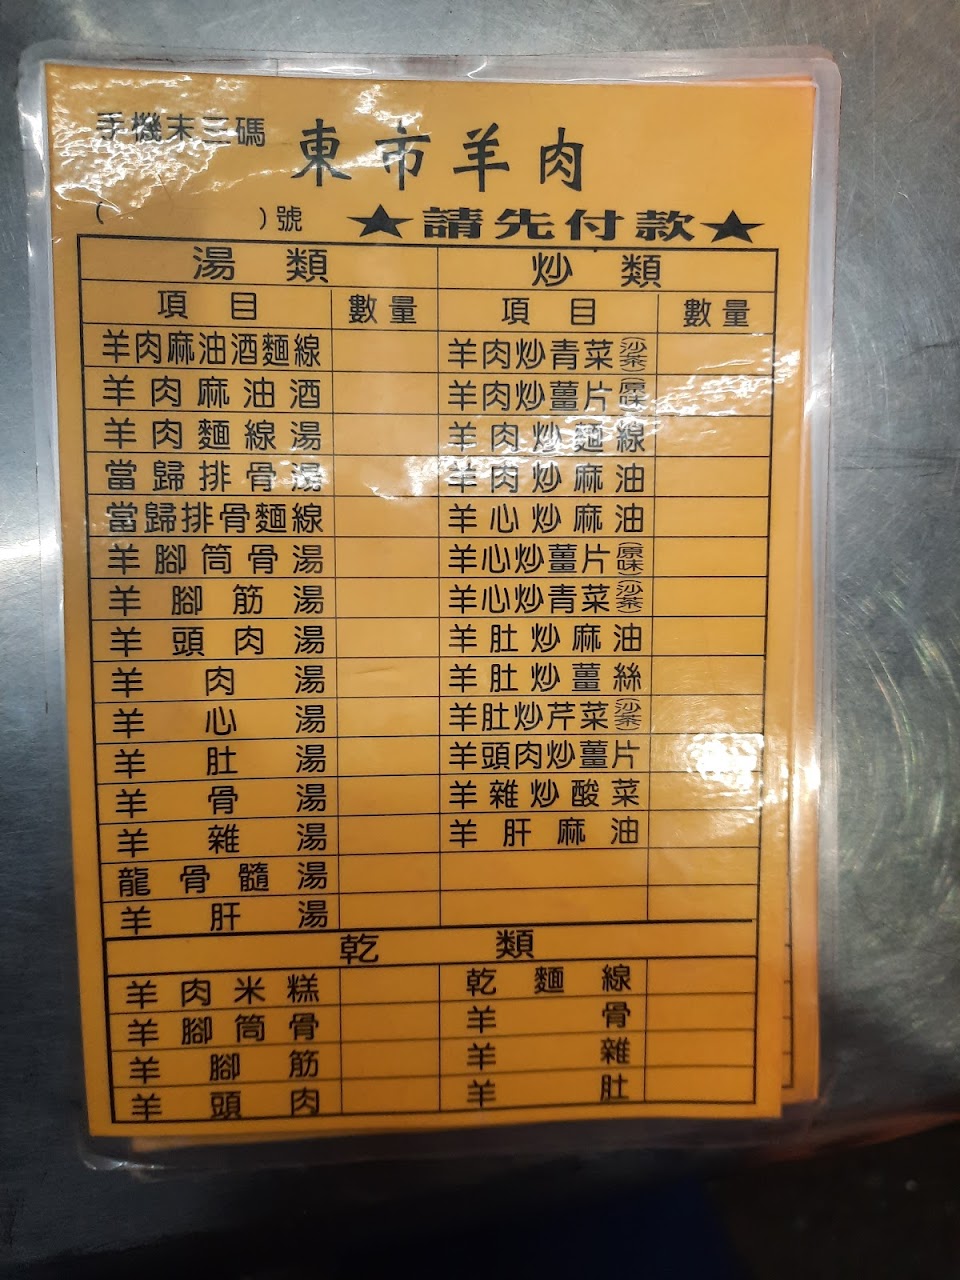 手機末三碼
東市羊肉
( )號
★請先付款★
湯類
項目 數量
羊肉麻油酒麵線
羊肉麻油酒
羊肉麵線湯
當歸排骨湯
當歸排骨麵線
羊腳筒骨湯
羊腳筋湯
羊頭肉湯
羊肉湯
羊心湯
羊肚湯
羊骨湯
羊雜湯
龍骨髓湯
羊肝湯
炒類
項目 數量
羊肉炒青菜(沙茶)
羊肉炒薑片(原味)
羊肉炒麵線
羊肉炒麻油
羊心炒麻油
羊心炒薑片(原味)
羊心炒青菜(沙茶)
羊肚炒麻油
羊肚炒薑絲
羊肚炒芹菜(沙茶)
羊頭肉炒薑片
羊雜炒酸菜
羊肝麻油
乾類
羊肉米糕
羊腳筒骨
羊腳筋
羊頭肉
乾麵線
羊骨
羊雜
羊肚